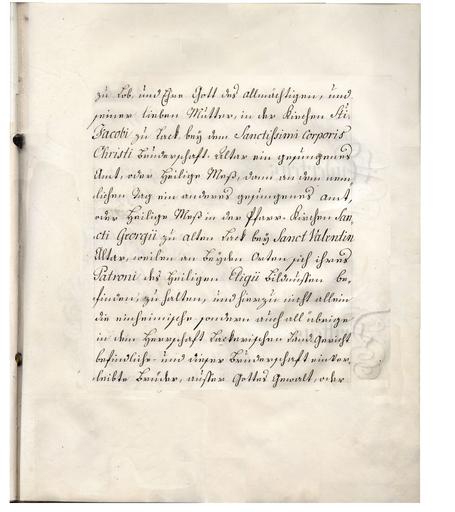 zu Lob, und Ehre Gott des allmächtigen, und
seiner lieben Mutter, in der Kirchen Sti.
Jacobi zu Lack bey dem Sanctissimi Corporis
Christi Bruderschaft-Altar ein gesungenes
Amt, oder Heilige Meß, dann an dem nem-
lichen Tag ein anderes gesungenes amt,
oder Heilige Meß in der Pfarr-Kirchen San-
cti Georgii zu alten Lack bey Sanct Valentin
Altar, weilen an beyden Orten sich ihres
Patroni des Heiligen Eligii Bildnussen be-
finden, zu halten, und hierzu nicht allein
die einheimische sondern auch all übrige
in dem Herrschaft Lackerischen Land-Gericht
befindliche- und dieser Bruderschaft einver-
leibte Brüder, ausser Gottes Gewalt, oder